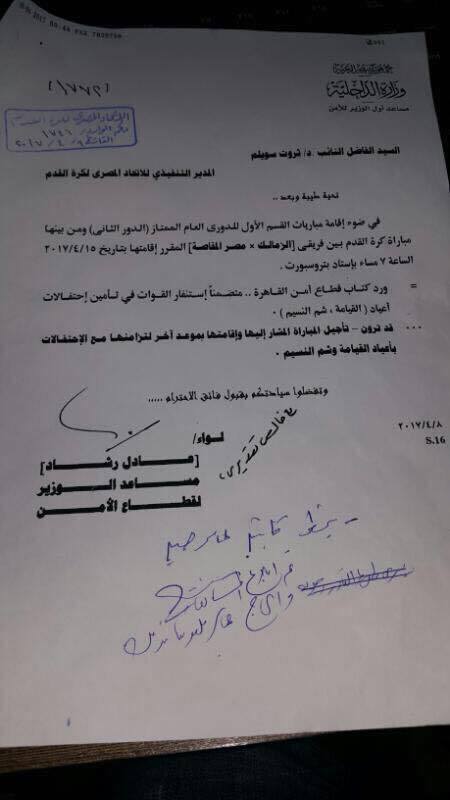 جمهورية مصر العربية
وزارة الداخلية
مساعد أول الوزير للأمن
[١٧٧٢]
الاتحاد المصرى لكرة القدم
١٧٤٦
٢٠١٧/٤/٩
السيد الفاضل النائب د/ ثروت سويلم
المدير التنفيذي للاتحاد المصرى لكرة القدم
تحية طيبة وبعد ..
في ضوء إقامة مباريات القسم الأول للدورى العام الممتاز (الدور الثانى) ومن بينها
مباراة كرة القدم بين فريقى [الزمالك × مصر المقاصة] المقرر إقامتها بتاريخ ٢٠١٧/٤/١٥
الساعة ٧ مساء بإستاد بتروسبورت .
= ورد كتاب قطاع أمن القاهرة .. متضمناً إستنفار القوات في تأمين إحتفالات
أعياد ( القيامة ، شم النسيم ) .
... قد ترون - تأجيل المباراة المشار إليها وإقامتها بموعد آخر لتزامنها مع الإحتفالات
بأعياد القيامة وشم النسيم .
وتفضلوا سيادتكم بقبول فائق الاحترام .....
مع خالص تقديرى،
٢٠١٧/٤/٨
S.16
لواء/
[عادل رشاد]
مساعد الوزير
لقطاع الأمن